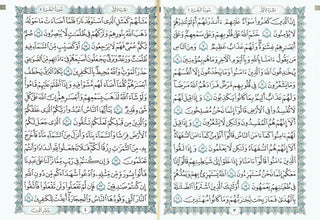 سُورَةُ البَقَرَةِ الجُزْءُ الأَوَّلُ
إِنَّ الَّذِينَ كَفَرُوا سَوَاءٌ عَلَيْهِمْ ءَأَنذَرْتَهُمْ أَمْ لَمْ تُنذِرْهُمْ
لَا يُؤْمِنُونَ ٦ خَتَمَ اللَّهُ عَلَىٰ قُلُوبِهِمْ وَعَلَىٰ سَمْعِهِمْ وَعَلَىٰ
أَبْصَارِهِمْ غِشَاوَةٌ وَلَهُمْ عَذَابٌ عَظِيمٌ ٧ وَمِنَ النَّاسِ
مَن يَقُولُ ءَامَنَّا بِاللَّهِ وَبِالْيَوْمِ الْآخِرِ وَمَا هُم بِمُؤْمِنِينَ ٨
يُخَادِعُونَ اللَّهَ وَالَّذِينَ ءَامَنُوا وَمَا يَخْدَعُونَ إِلَّا أَنفُسَهُمْ
وَمَا يَشْعُرُونَ ٩ فِي قُلُوبِهِم مَّرَضٌ فَزَادَهُمُ اللَّهُ مَرَضًا
وَلَهُمْ عَذَابٌ أَلِيمٌ بِمَا كَانُوا يَكْذِبُونَ ١٠ وَإِذَا قِيلَ لَهُمْ
لَا تُفْسِدُوا فِي الْأَرْضِ قَالُوا إِنَّمَا نَحْنُ مُصْلِحُونَ ١١
أَلَا إِنَّهُمْ هُمُ الْمُفْسِدُونَ وَلَٰكِن لَّا يَشْعُرُونَ ١٢ وَإِذَا قِيلَ
لَهُمْ ءَامِنُوا كَمَا ءَامَنَ النَّاسُ قَالُوا أَنُؤْمِنُ كَمَا ءَامَنَ السُّفَهَاءُ
أَلَا إِنَّهُمْ هُمُ السُّفَهَاءُ وَلَٰكِن لَّا يَعْلَمُونَ ١٣ وَإِذَا لَقُوا
الَّذِينَ ءَامَنُوا قَالُوا ءَامَنَّا وَإِذَا خَلَوْا إِلَىٰ شَيَاطِينِهِمْ قَالُوا إِنَّا
مَعَكُمْ إِنَّمَا نَحْنُ مُسْتَهْزِءُونَ ١٤ اللَّهُ يَسْتَهْزِئُ بِهِمْ وَيَمُدُّهُمْ
فِي طُغْيَانِهِمْ يَعْمَهُونَ ١٥ أُولَٰئِكَ الَّذِينَ اشْتَرَوُا الضَّلَالَةَ
بِالْهُدَىٰ فَمَا رَبِحَت تِّجَارَتُهُمْ وَمَا كَانُوا مُهْتَدِينَ ١٦
٣
الجُزْءُ الأَوَّلُ سُورَةُ البَقَرَةِ
مَثَلُهُمْ كَمَثَلِ الَّذِي اسْتَوْقَدَ نَارًا فَلَمَّا أَضَاءَتْ مَا حَوْلَهُ
ذَهَبَ اللَّهُ بِنُورِهِمْ وَتَرَكَهُمْ فِي ظُلُمَاتٍ لَّا يُبْصِرُونَ ١٧ صُمٌّ
بُكْمٌ عُمْيٌ فَهُمْ لَا يَرْجِعُونَ ١٨ أَوْ كَصَيِّبٍ مِّنَ السَّمَاءِ فِيهِ
ظُلُمَاتٌ وَرَعْدٌ وَبَرْقٌ يَجْعَلُونَ أَصَابِعَهُمْ فِي ءَاذَانِهِم مِّنَ الصَّوَاعِقِ
حَذَرَ الْمَوْتِ وَاللَّهُ مُحِيطٌ بِالْكَافِرِينَ ١٩ يَكَادُ الْبَرْقُ يَخْطَفُ
أَبْصَارَهُمْ كُلَّمَا أَضَاءَ لَهُم مَّشَوْا فِيهِ وَإِذَا أَظْلَمَ عَلَيْهِمْ قَامُوا
وَلَوْ شَاءَ اللَّهُ لَذَهَبَ بِسَمْعِهِمْ وَأَبْصَارِهِمْ إِنَّ اللَّهَ عَلَىٰ كُلِّ
شَيْءٍ قَدِيرٌ ٢٠ يَا أَيُّهَا النَّاسُ اعْبُدُوا رَبَّكُمُ الَّذِي خَلَقَكُمْ
وَالَّذِينَ مِن قَبْلِكُمْ لَعَلَّكُمْ تَتَّقُونَ ٢١ الَّذِي جَعَلَ لَكُمُ
الْأَرْضَ فِرَاشًا وَالسَّمَاءَ بِنَاءً وَأَنزَلَ مِنَ السَّمَاءِ مَاءً فَأَخْرَجَ
بِهِ مِنَ الثَّمَرَاتِ رِزْقًا لَّكُمْ فَلَا تَجْعَلُوا لِلَّهِ أَندَادًا وَأَنتُمْ
تَعْلَمُونَ ٢٢ وَإِن كُنتُمْ فِي رَيْبٍ مِّمَّا نَزَّلْنَا عَلَىٰ عَبْدِنَا فَأْتُوا
بِسُورَةٍ مِّن مِّثْلِهِ وَادْعُوا شُهَدَاءَكُم مِّن دُونِ اللَّهِ
إِن كُنتُمْ صَادِقِينَ ٢٣ فَإِن لَّمْ تَفْعَلُوا وَلَن تَفْعَلُوا فَاتَّقُوا
النَّارَ الَّتِي وَقُودُهَا النَّاسُ وَالْحِجَارَةُ أُعِدَّتْ لِلْكَافِرِينَ ٢٤
٤